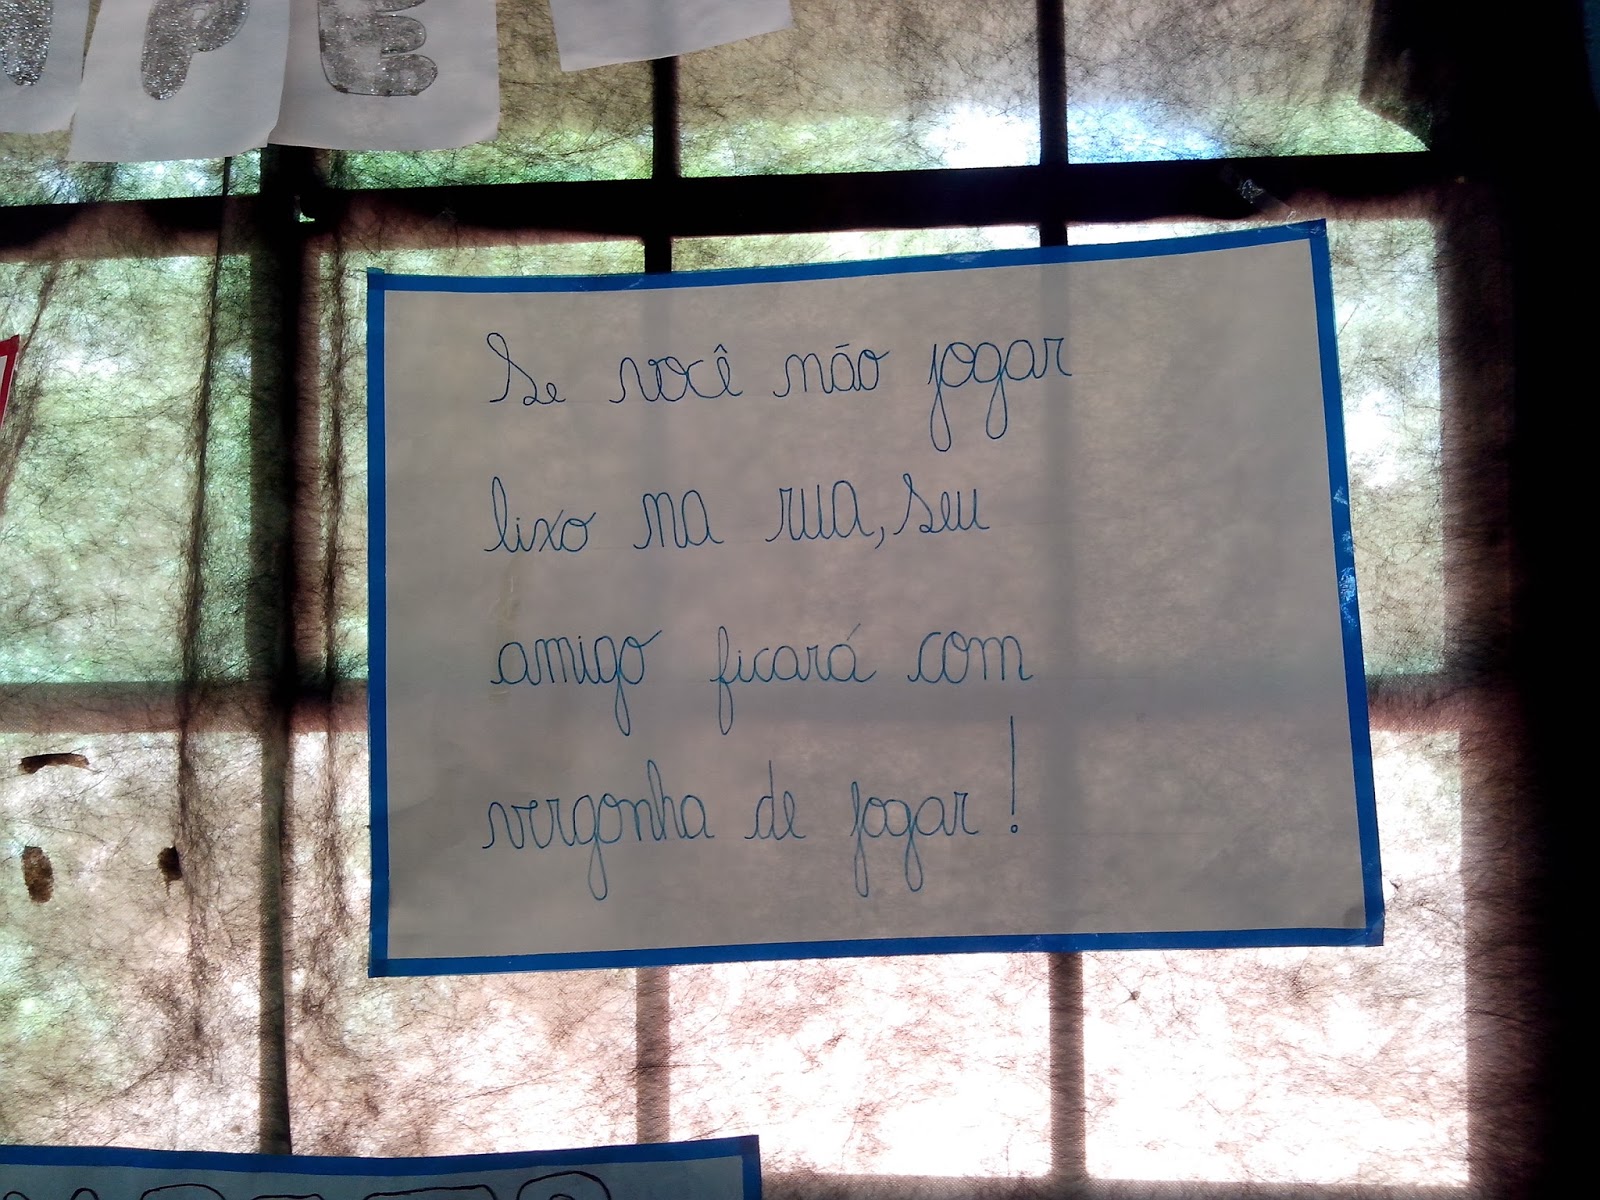 PE
Se você não jogar
lixo na rua, seu
amigo ficará com
vergonha de jogar!